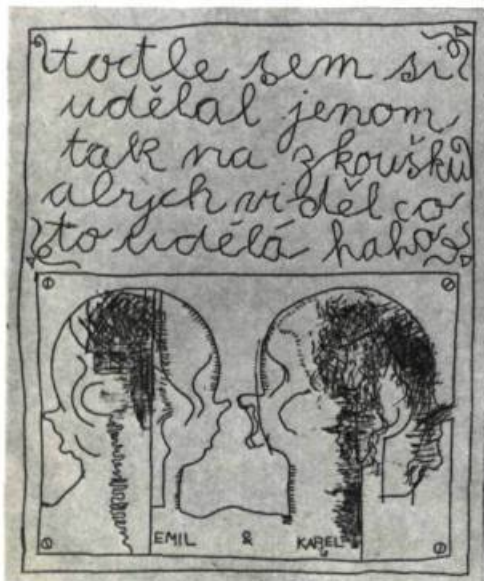 toctle sem si
udělal jenom
tak na zkoušku
abych viděl co
to udělá hahó
EMIL & KAREL